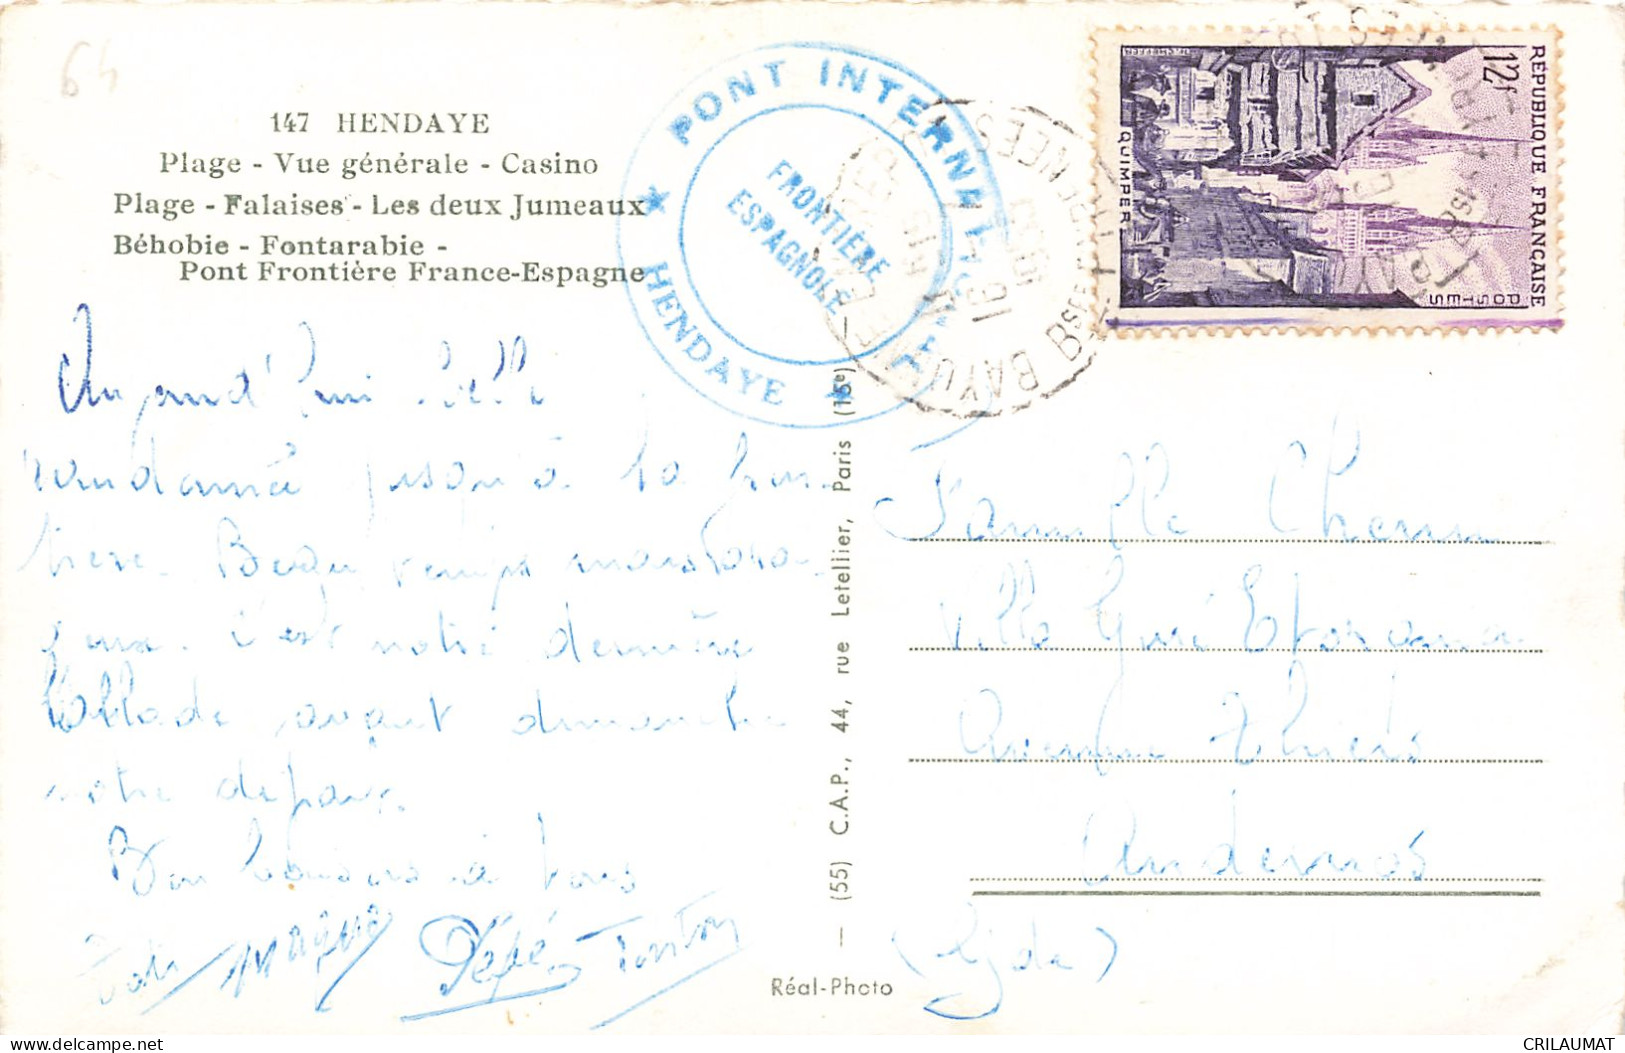 64
147 HENDAYE
Plage - Vue générale - Casino
Plage - Falaises - Les deux Jumeaux
Béhobie - Fontarabie -
Pont Frontière France-Espagne
PONT INTERNATIONAL
FRONTIÈRE
ESPAGNOLE
★ HENDAYE ★
BAYONNE
Bses PYRENEES
RÉPUBLIQUE FRANÇAISE
12f
POSTES
QUIMPER
Aujourd'hui belle
randonnée jusqu'à la fron
tière. Beau temps
c'est notre dernière
ballade avant dimanche
notre départ.
Bon baisers à tous
Mémé Pépé Tonton
Famille
Villa
Avenue Thiers
Andernos
(Gjde)
— (55) C.A.P., 44, rue Letellier, Paris (15e) —
Réal-Photo
CRILAUMAT